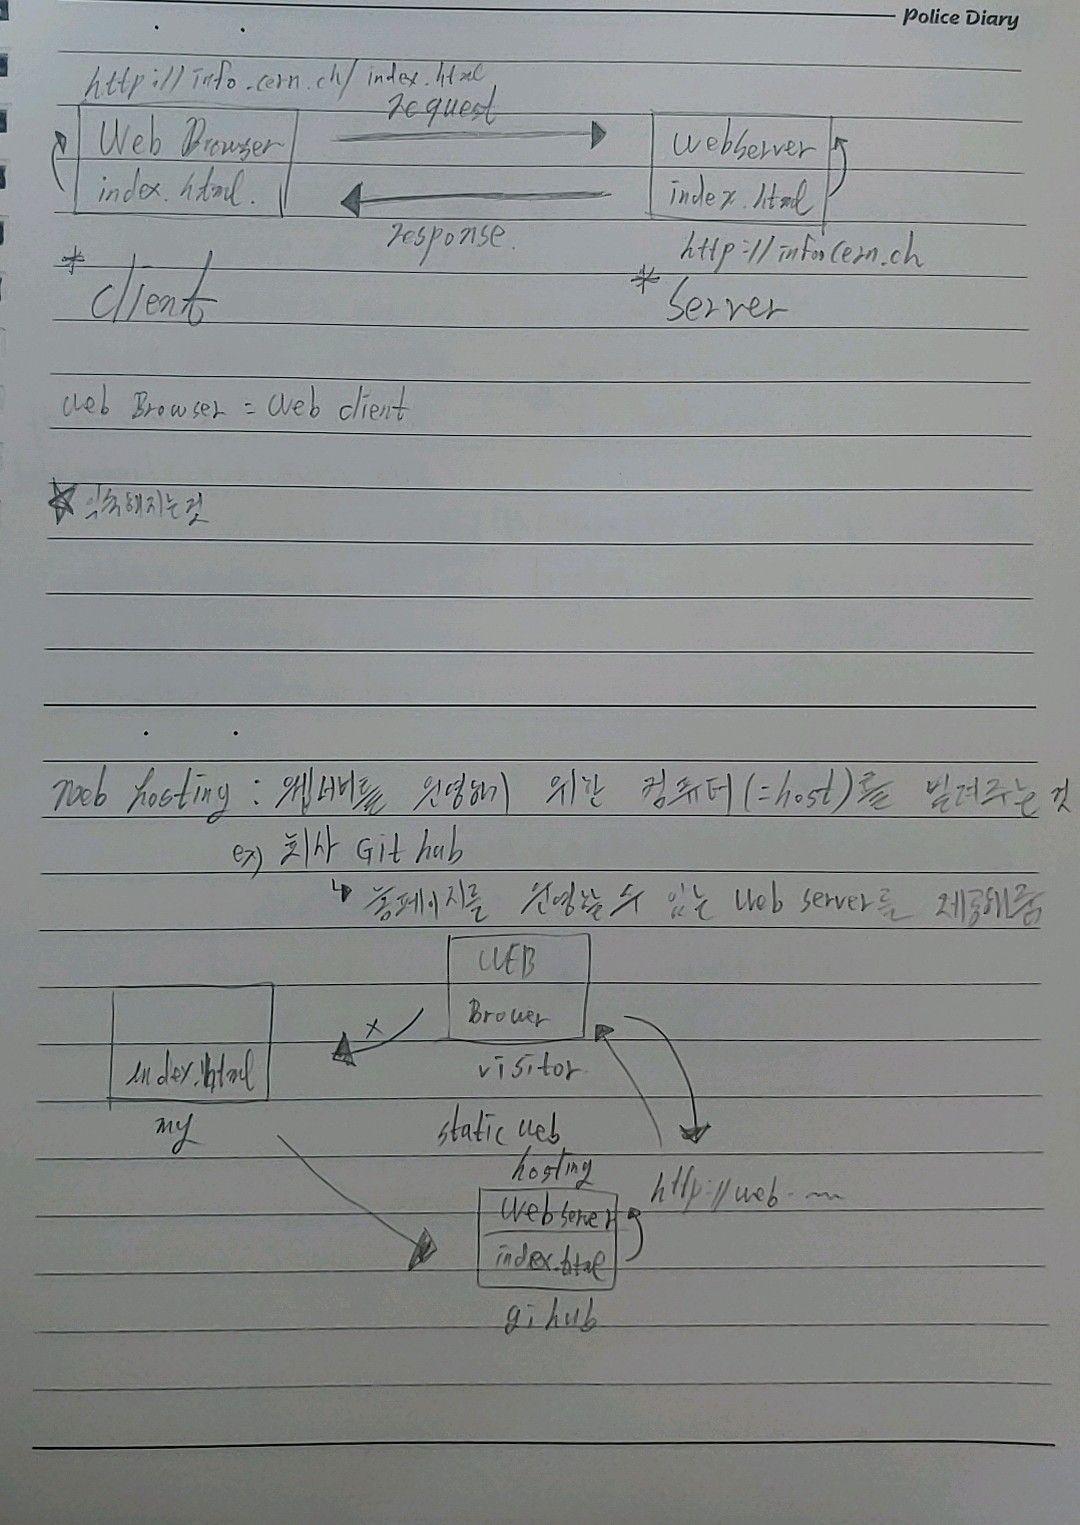 Police Diary
http://info.cern.ch/index.html
request
Web Browser
index.html.
webserver
index.html
response.
http://info.cern.ch
* client
* Server
Web Browser = Web client
☆ 익숙해지는것
Web hosting : 웹서버를 운영하기 위한 컴퓨터(=host)를 빌려주는 것
ex) 회사 Git hub
↳ 홈페이지를 운영할 수 있는 Web server를 제공해줌
WEB
Brower
x
index.html
visitor
my
static web
hosting
http://web. ~~
Web server
index.html
gihub